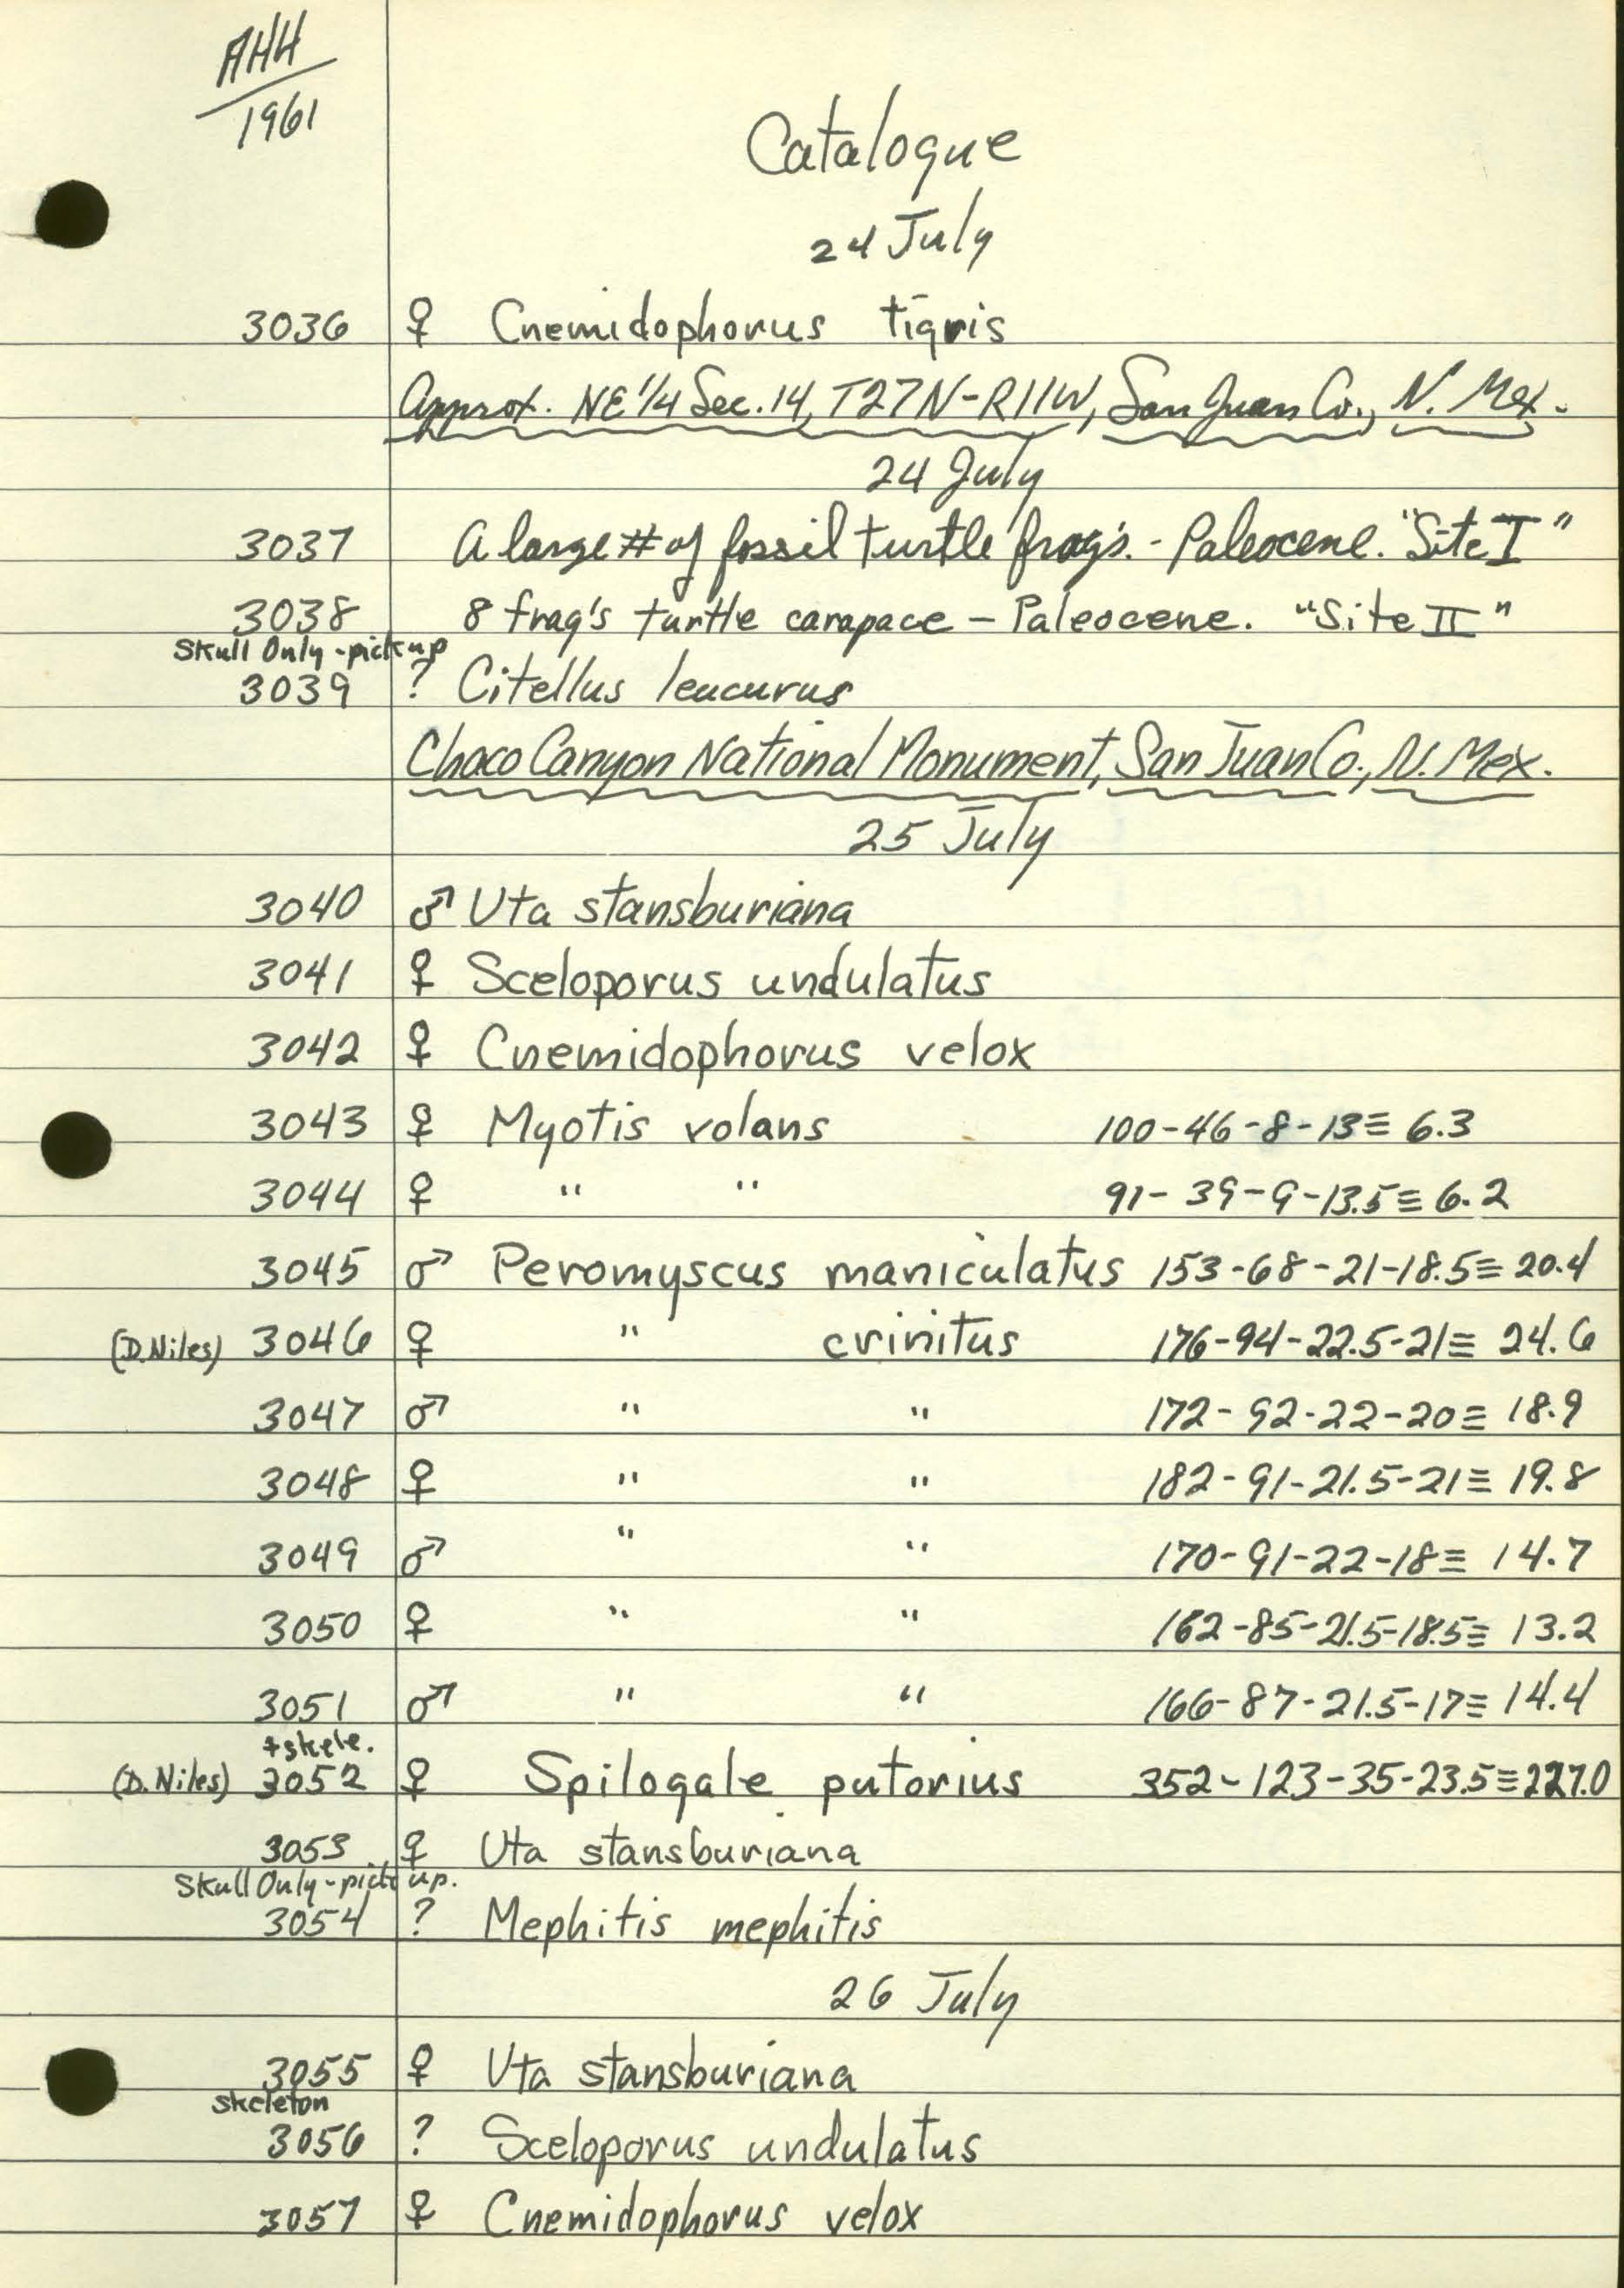 AHH
1961
Catalogue
24 July
3036 ♀ Cnemidophorus tigris
Approx. NE 1/4 Sec. 14, T27N-R11W, San Juan Co., N. Mex.
24 July
3037 A large # of fossil turtle frag's. - Paleocene. "Site I"
3038 8 frag's turtle carapace - Paleocene. "Site II"
Skull Only - pick up
3039 ? Citellus leucurus
Chaco Canyon National Monument, San Juan Co., N. Mex.
25 July
3040 ♂ Uta stansburiana
3041 ♀ Sceloporus undulatus
3042 ♀ Cnemidophorus velox
3043 ♀ Myotis volans 100-46-8-13≡ 6.3
3044 ♀ " " 91-39-9-13.5≡ 6.2
3045 ♂ Peromyscus maniculatus 153-68-21-18.5≡ 20.4
(D. Niles) 3046 ♀ " crinitus 176-94-22.5-21≡ 24.6
3047 ♂ " " 172-92-22-20≡ 18.9
3048 ♀ " " 182-91-21.5-21≡ 19.8
3049 ♂ " " 170-91-22-18≡ 14.7
3050 ♀ " " 162-85-21.5-18.5≡ 13.2
3051 ♂ " " 166-87-21.5-17≡ 14.4
+ skele.
(D. Niles) 3052 ♀ Spilogale putorius 352-123-35-23.5≡227.0
3053 ♀ Uta stansburiana
Skull Only - pick up.
3054 ? Mephitis mephitis
26 July
3055 ♀ Uta stansburiana
Skeleton
3056 ? Sceloporus undulatus
3057 ♀ Cnemidophorus velox